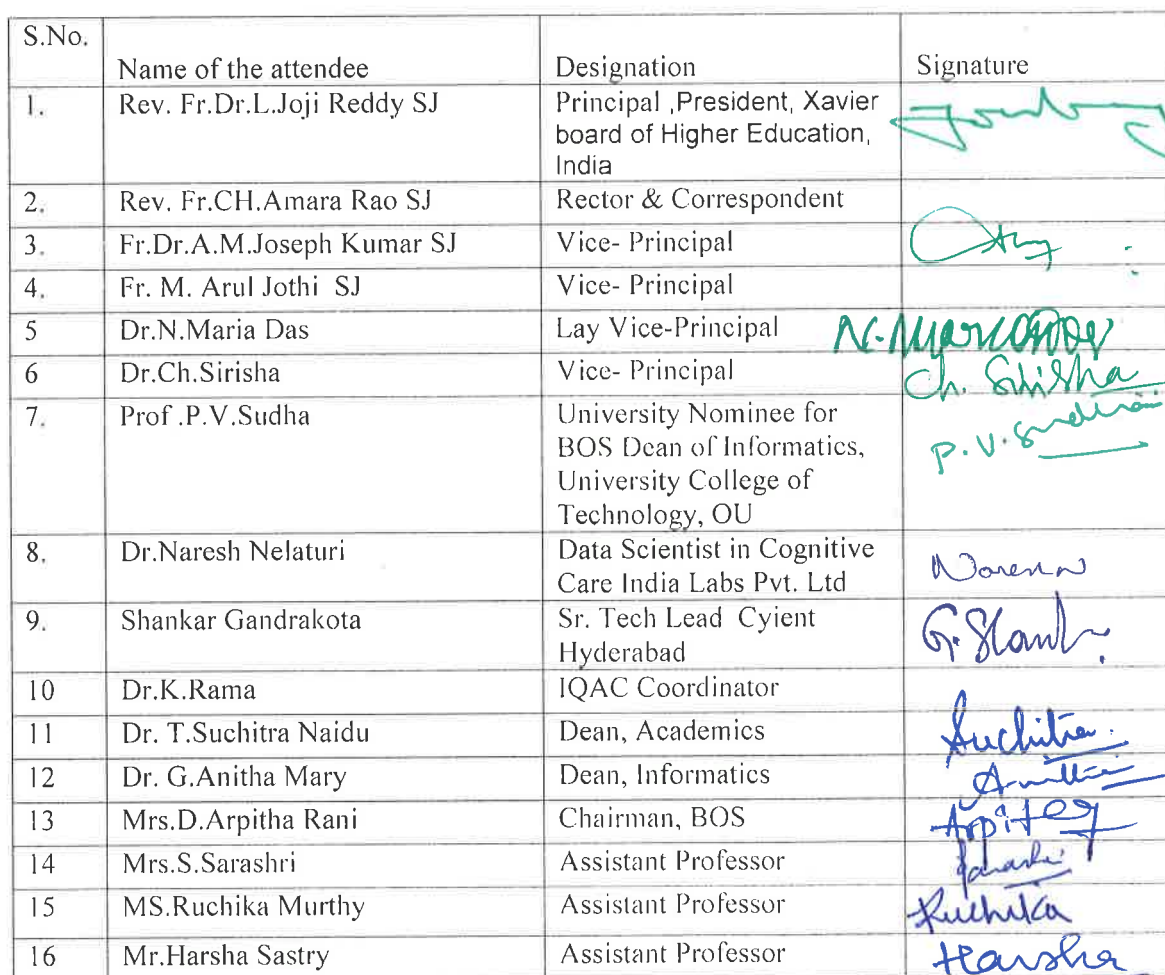 S.No. Name of the attendee Designation Signature
1. Rev. Fr.Dr.L.Joji Reddy SJ Principal ,President, Xavier
board of Higher Education,
India
2. Rev. Fr.CH.Amara Rao SJ Rector & Correspondent
3. Fr.Dr.A.M.Joseph Kumar SJ Vice- Principal
4. Fr. M. Arul Jothi SJ Vice- Principal
5 Dr.N.Maria Das Lay Vice-Principal
6 Dr.Ch.Sirisha Vice- Principal Ch. Sirisha
7. Prof .P.V.Sudha University Nominee for P.V.Sudha
BOS Dean of Informatics,
University College of
Technology, OU
8. Dr.Naresh Nelaturi Data Scientist in Cognitive
Care India Labs Pvt. Ltd
9. Shankar Gandrakota Sr. Tech Lead Cyient
Hyderabad
10 Dr.K.Rama IQAC Coordinator
11 Dr. T.Suchitra Naidu Dean, Academics Suchitra
12 Dr. G.Anitha Mary Dean, Informatics
13 Mrs.D.Arpitha Rani Chairman, BOS
14 Mrs.S.Sarashri Assistant Professor
15 MS.Ruchika Murthy Assistant Professor Ruchika
16 Mr.Harsha Sastry Assistant Professor Harsha